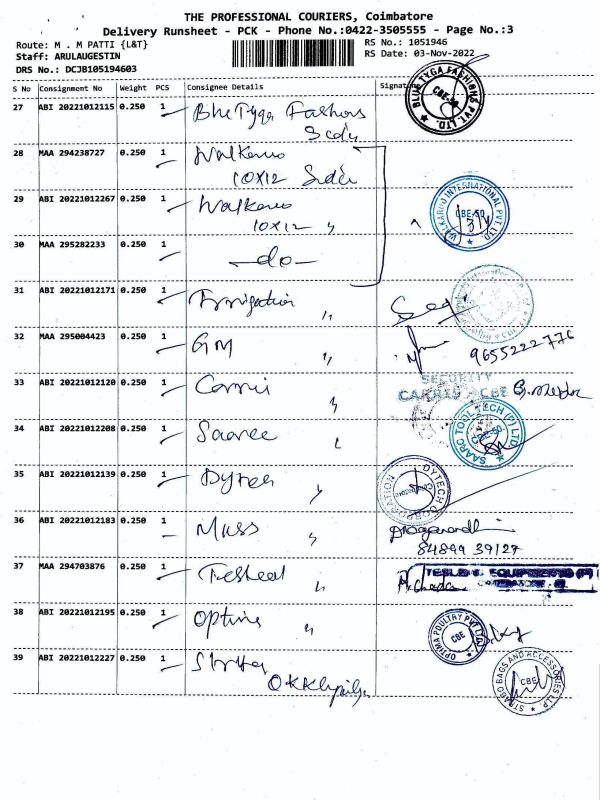 THE PROFESSIONAL COURIERS, Coimbatore
Delivery Runsheet - PCK - Phone No.:0422-3505555 - Page No.:3
Route: M . M PATTI {L&T}
RS No.: 1051946
Staff: ARULAUGESTIN
RS Date: 03-Nov-2022
DRS No.: DCJB105194603
S No Consignment No Weight PCS Consignee Details Signature
27 ABI 20221012115 0.250 1 Blue Tyga Fashions
BLUE TYGA FASHIONS PVT. LTD. CBE-50
28 MAA 294238727 0.250 1 Walkaroo
10X12
29 ABI 20221012267 0.250 1 Walkaroo
10X12 "
WALKAROO INTERNATIONAL PVT. LTD CBE-50
30 MAA 295282233 0.250 1 -do-
31 ABI 20221012171 0.250 1 Irrigation "
32 MAA 295004423 0.250 1 GM "
9655222776
33 ABI 20221012120 0.250 1 "
SECURITY
CBE
34 ABI 20221012208 0.250 1
SAARC TOOL TECH (P) LTD CBE-50
35 ABI 20221012139 0.250 1 Dytech "
DYTECH CORPORATION
36 ABI 20221012183 0.250 1 "
84899 39127
37 MAA 294703876 0.250 1 "
38 ABI 20221012195 0.250 1 Optima "
OPTIMA POULTRY PVT LTD CBE
39 ABI 20221012227 0.250 1
STRABO BAGS AND ACCESSORIES LLP. CBE